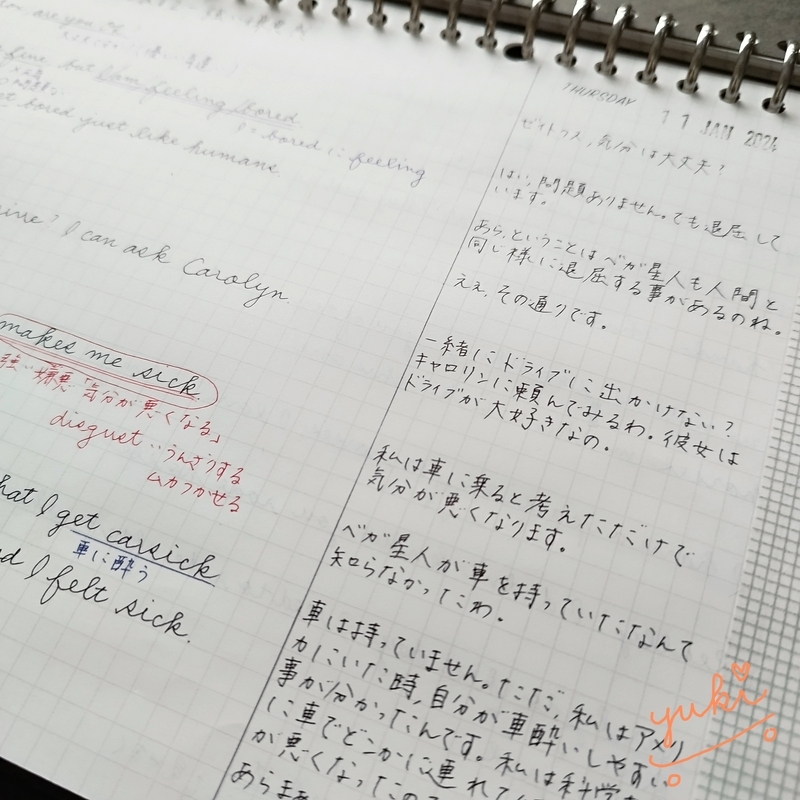 are you ok
fine, but I am feeling bored
bored に feeling
get bored just like humans
I can ask Carolyn.
makes me sick.
強い嫌悪「気分が悪くなる」
disgust‥うんざりする
ムカつかせる
that I get carsick
車に酔う
I felt sick.
THURSDAY 11 JAN 2024
気分は大丈夫?
はい、問題ありません。でも退屈して
います。
あら、ということはベガ星人も人間と
同じ様に退屈する事があるのね。
ええ、その通りです。
一緒にドライブに出かけない?
キャロリンに頼んでみるわ。彼女は
ドライブが大好きなの。
私は車に乗ると考えただけで
気分が悪くなります。
ベガ星人が車を持っていたなんて
知らなかったわ。
車は持っていません。ただ、私はアメリ
カにいた時、自分が車酔いしやすい
事が分かったんです。私は科学
に車でどこかに連れて
が悪くなったの
あらまあ
yuki